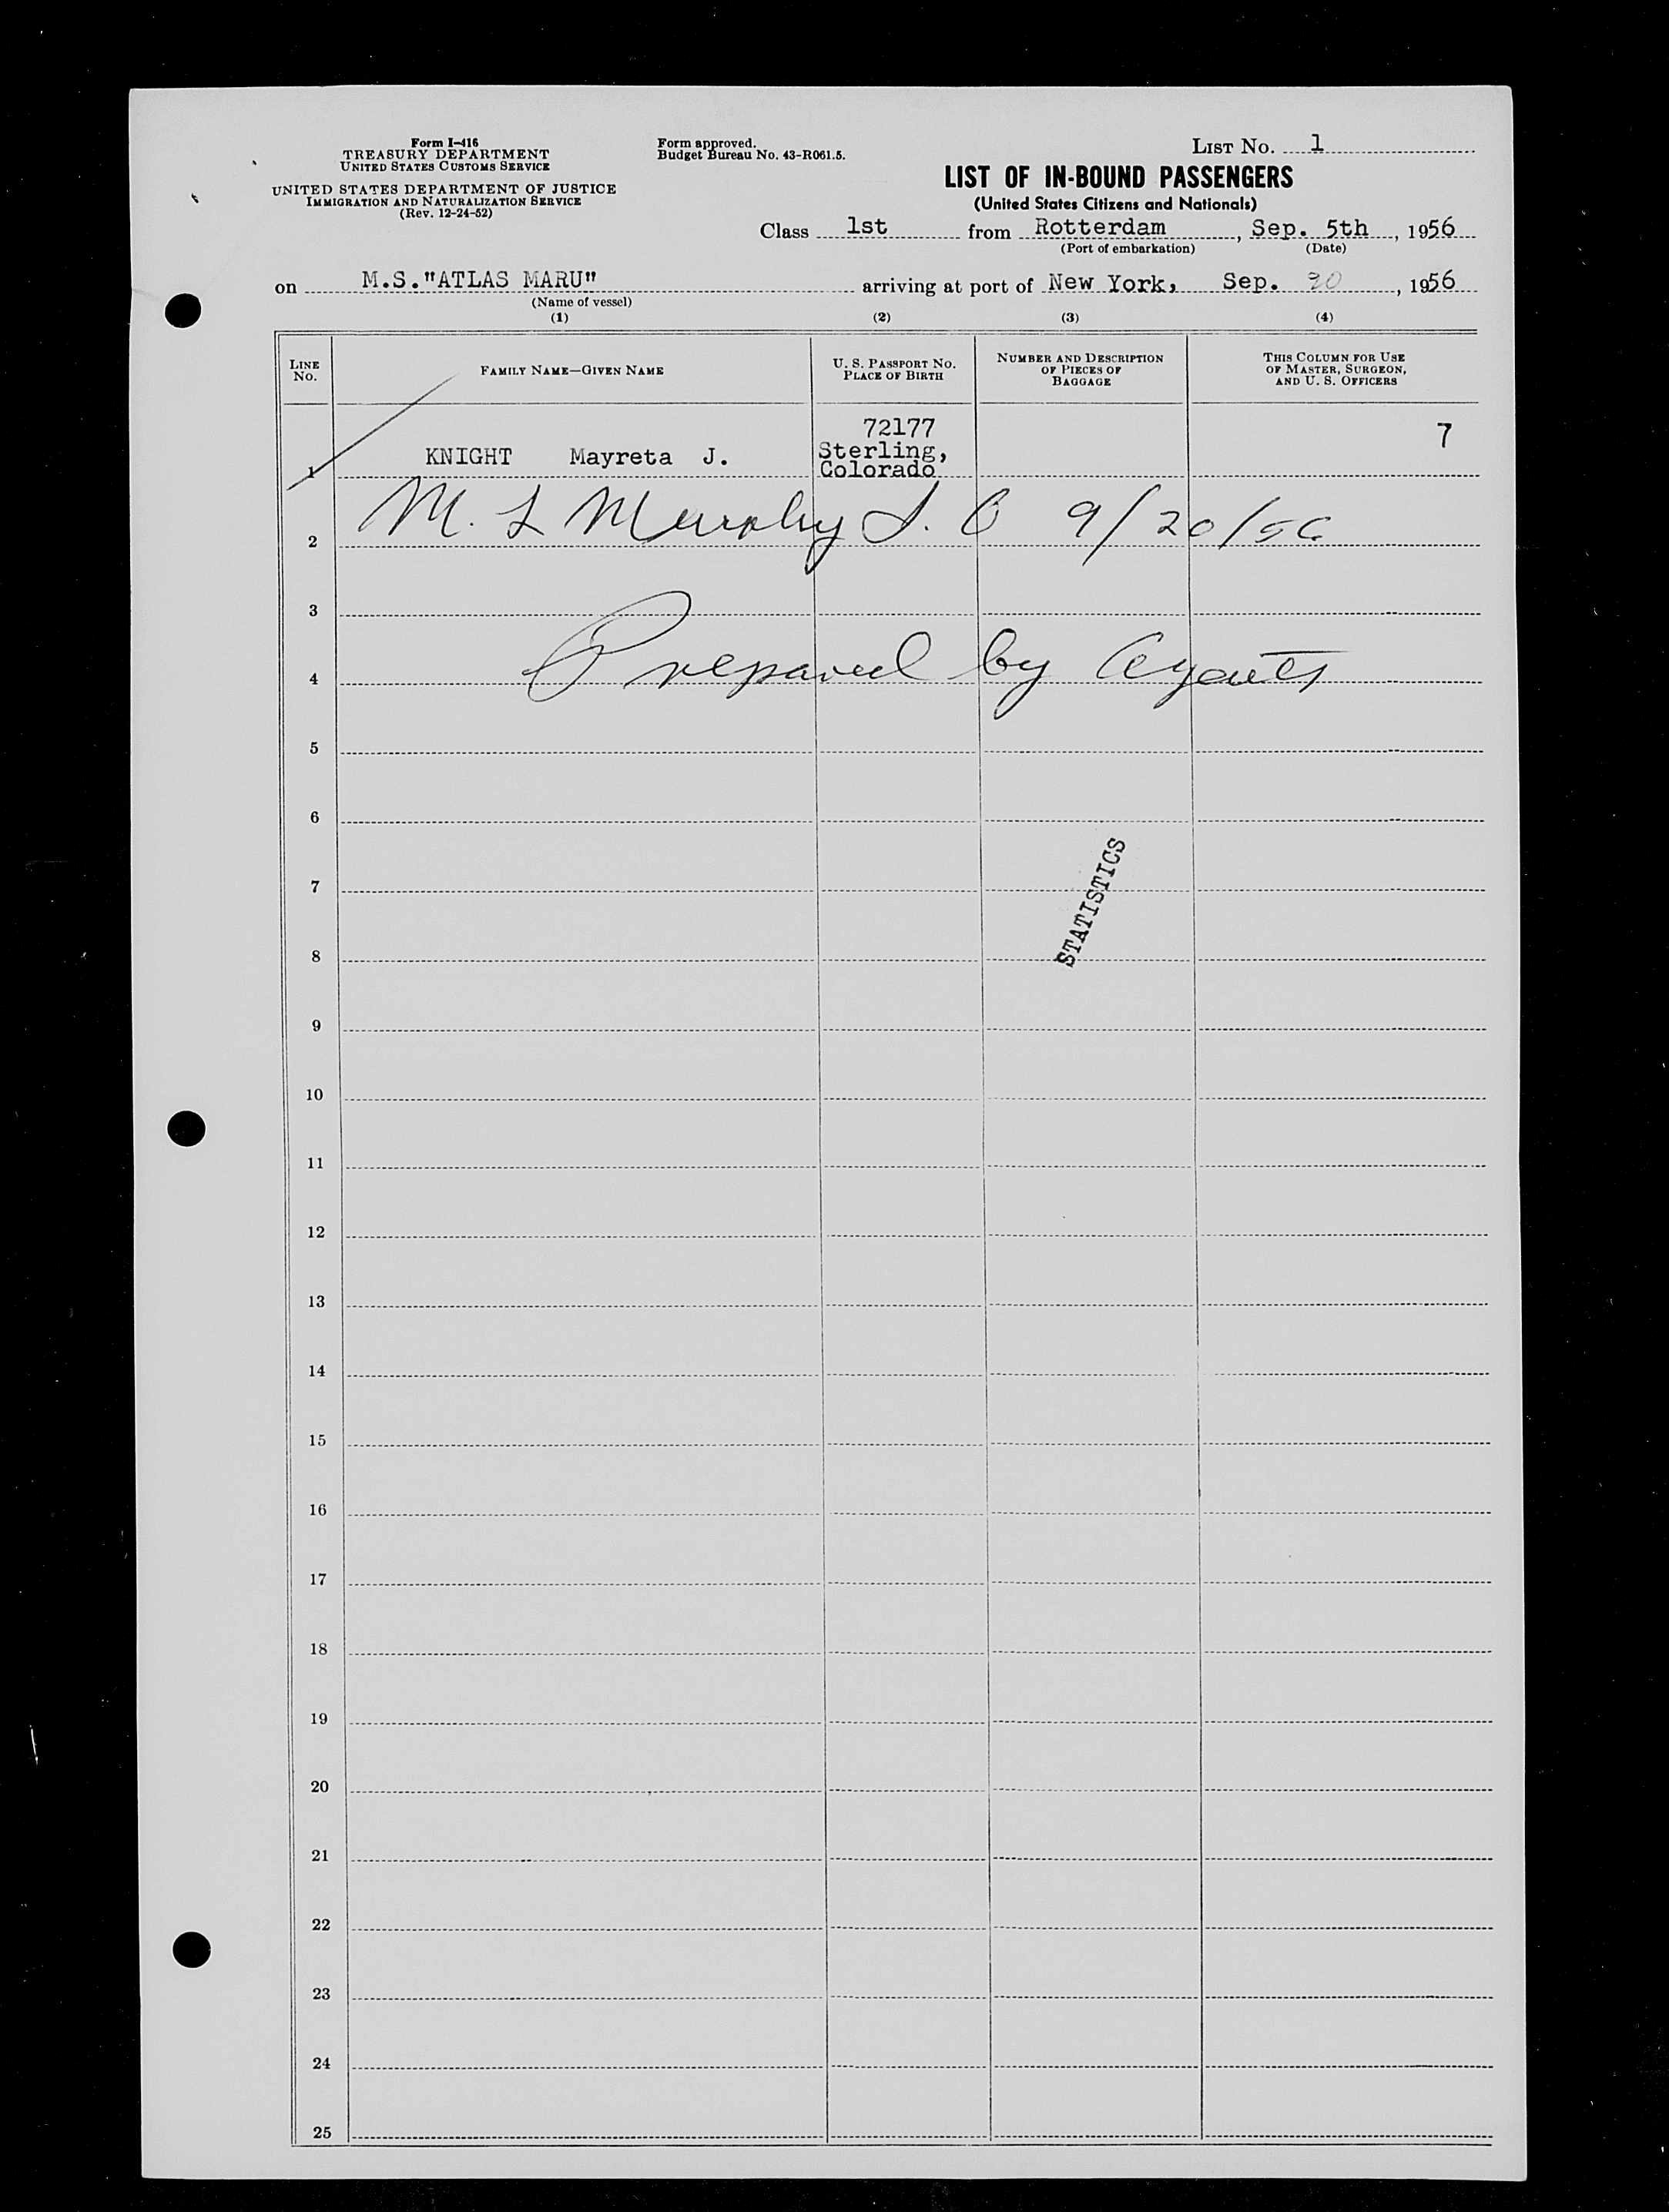 Form I-416
TREASURY DEPARTMENT
UNITED STATES CUSTOMS SERVICE
UNITED STATES DEPARTMENT OF JUSTICE
IMMIGRATION AND NATURALIZATION SERVICE
(Rev. 12-24-52)
Form approved.
Budget Bureau No. 43-R061.5.
LIST NO. 1
LIST OF IN-BOUND PASSENGERS
(United States Citizens and Nationals)
Class 1st from Rotterdam, Sep. 5th, 1956
(Port of embarkation) (Date)
on M.S."ATLAS MARU" arriving at port of New York, Sep. 20, 1956
(Name of vessel)
(1) (2) (3) (4)
LINE NO. FAMILY NAME—GIVEN NAME U. S. PASSPORT NO. PLACE OF BIRTH NUMBER AND DESCRIPTION OF PIECES OF BAGGAGE THIS COLUMN FOR USE OF MASTER, SURGEON, AND U. S. OFFICERS
72177 7
1 KNIGHT Mayreta J. Sterling,
Colorado
2 M. L Murphy I. O 9/20/56
3
4 Prepared by Agents
5
6
7
STATISTICS
8
9
10
11
12
13
14
15
16
17
18
19
20
21
22
23
24
25